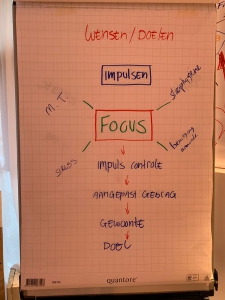 WENSEN/DOELEN
IMPULSEN
M.T.
slaaphygiene
FOCUS
stress
beweging
IMPULS CONTROLE
AANGEPAST GEDRAG
GEWOONTE
DOEL
quantore